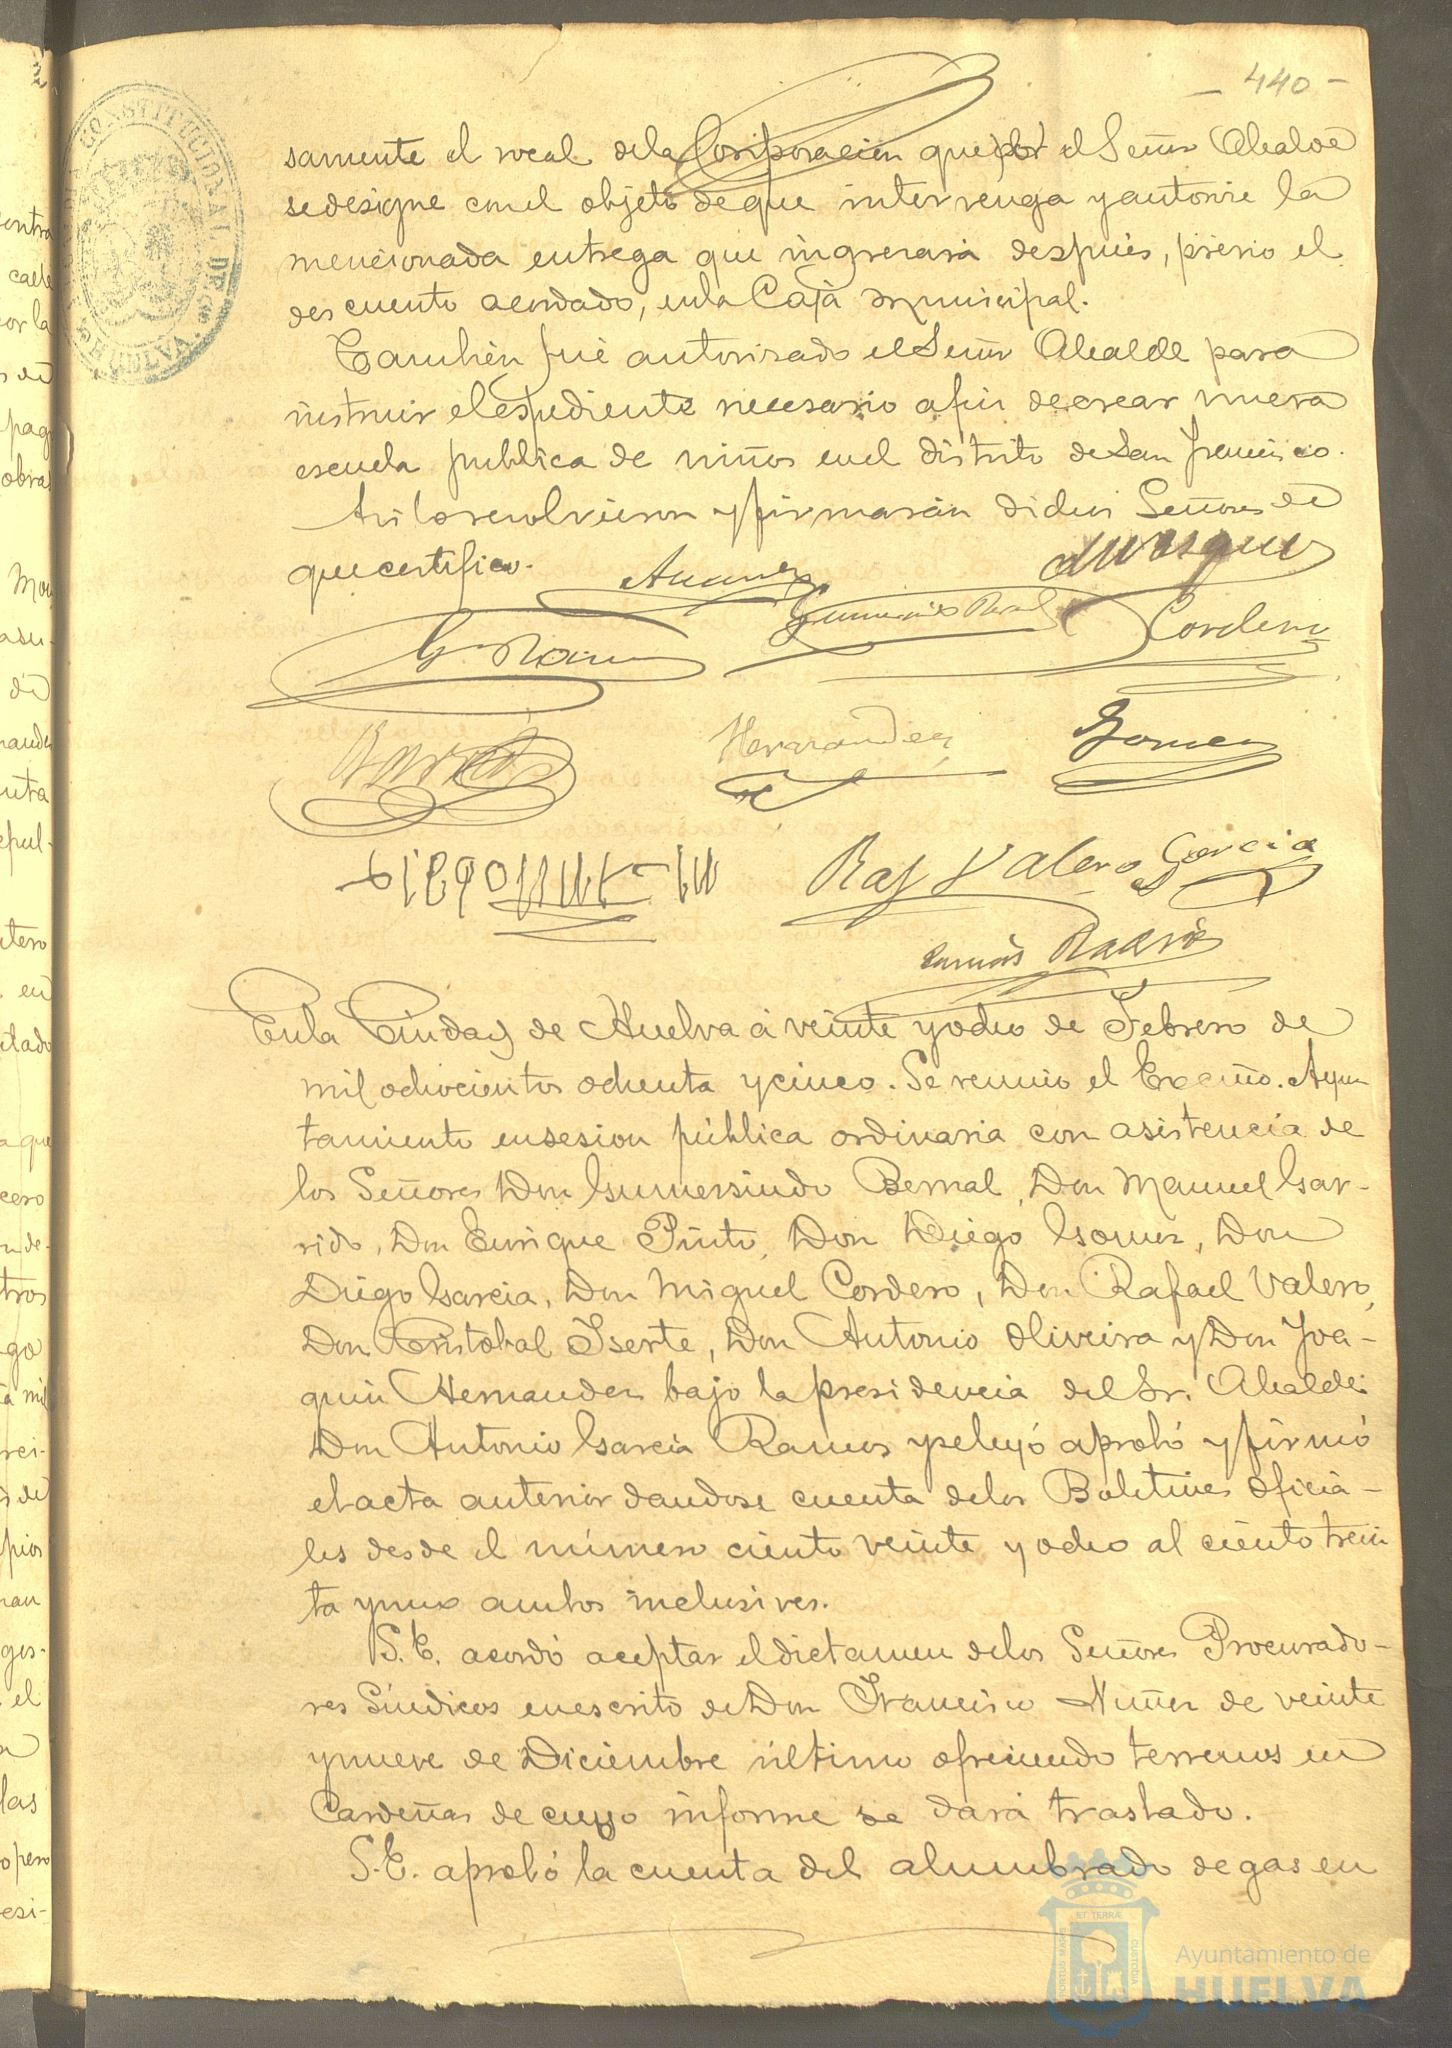 - 440 -
samente el vocal de la Corporacion que por el Señor Alcalde
se designe con el objeto de que intervenga y autorice la
mencionada entrega que ingresará despues, prévio el
descuento acordado, en la Caja municipal.
Tambien fué autorizado el Señor Alcalde para
instruir el espediente necesario a fin de crear nueva
escuela publica de niños en el distrito de San Francisco.
Asi lo resolvieron y firmarán dichos Señores de
que certifico.
Cordero
G. Ramos
Hernandez
Gomez
Raf Valero Garcia
En la Ciudad de Huelva á veinte y ocho de Febrero de
mil ochocientos ochenta y cinco. Se reunió el Excmo. Ayun
tamiento en sesion pública ordinaria con asistencia de
los Señores Don Gumersindo Bernal, Don Manuel Gar-
rido, Don Enrique Pinto, Don Diego Gomez, Don
Diego Garcia, Don Miguel Cordero, Don Rafael Valero,
Don Cristobal Iserte, Don Antonio Oliveira y Don Joa-
quin Hernandez bajo la presidencia del Sr. Alcalde
Don Antonio Garcia Ramos y se leyó aprobó y firmó
el acta anterior dandose cuenta de los Boletines oficia-
les desde el número ciento veinte y ocho al ciento trein
ta y uno ambos inclusives.
S. E. acordó aceptar el dictamen de los Señores Procurado-
res Síndicos en escrito de Don Francisco Nuñez de veinte
y nueve de Diciembre último ofreciendo terrenos en
Cardeñas de cuyo informe se dará traslado.
S. E. aprobó la cuenta del alumbrado de gas en
Ayuntamiento de
HUELVA